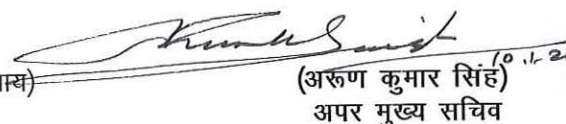 (अरूण कुमार सिंह) 10.1.2
अपर मुख्य सचिव